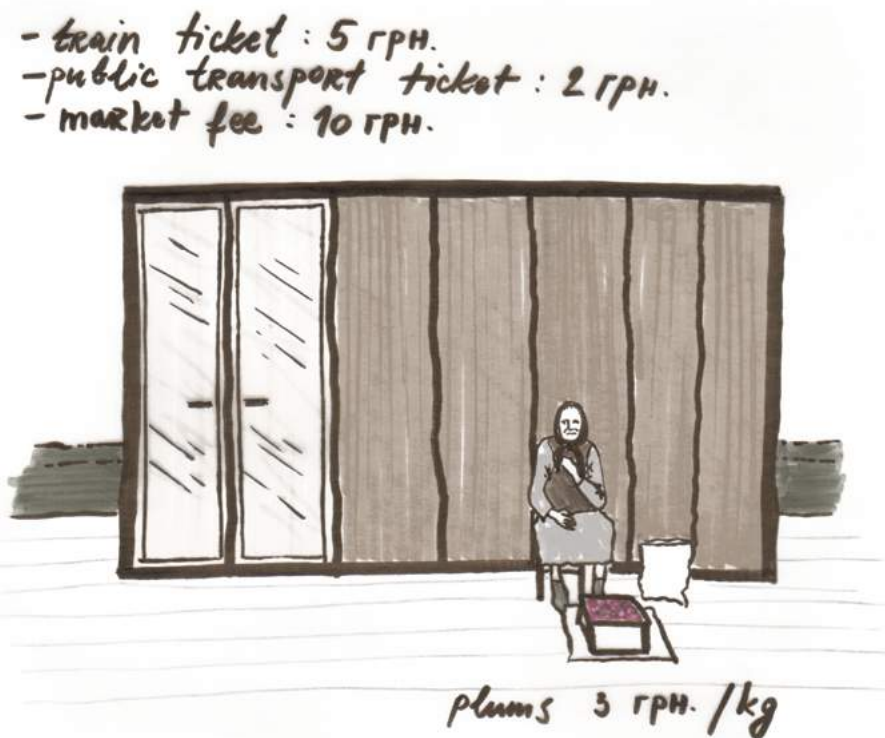 - train ticket : 5 грн.
- public transport ticket : 2 грн.
- market fee : 10 грн.
plums 3 грн. /kg